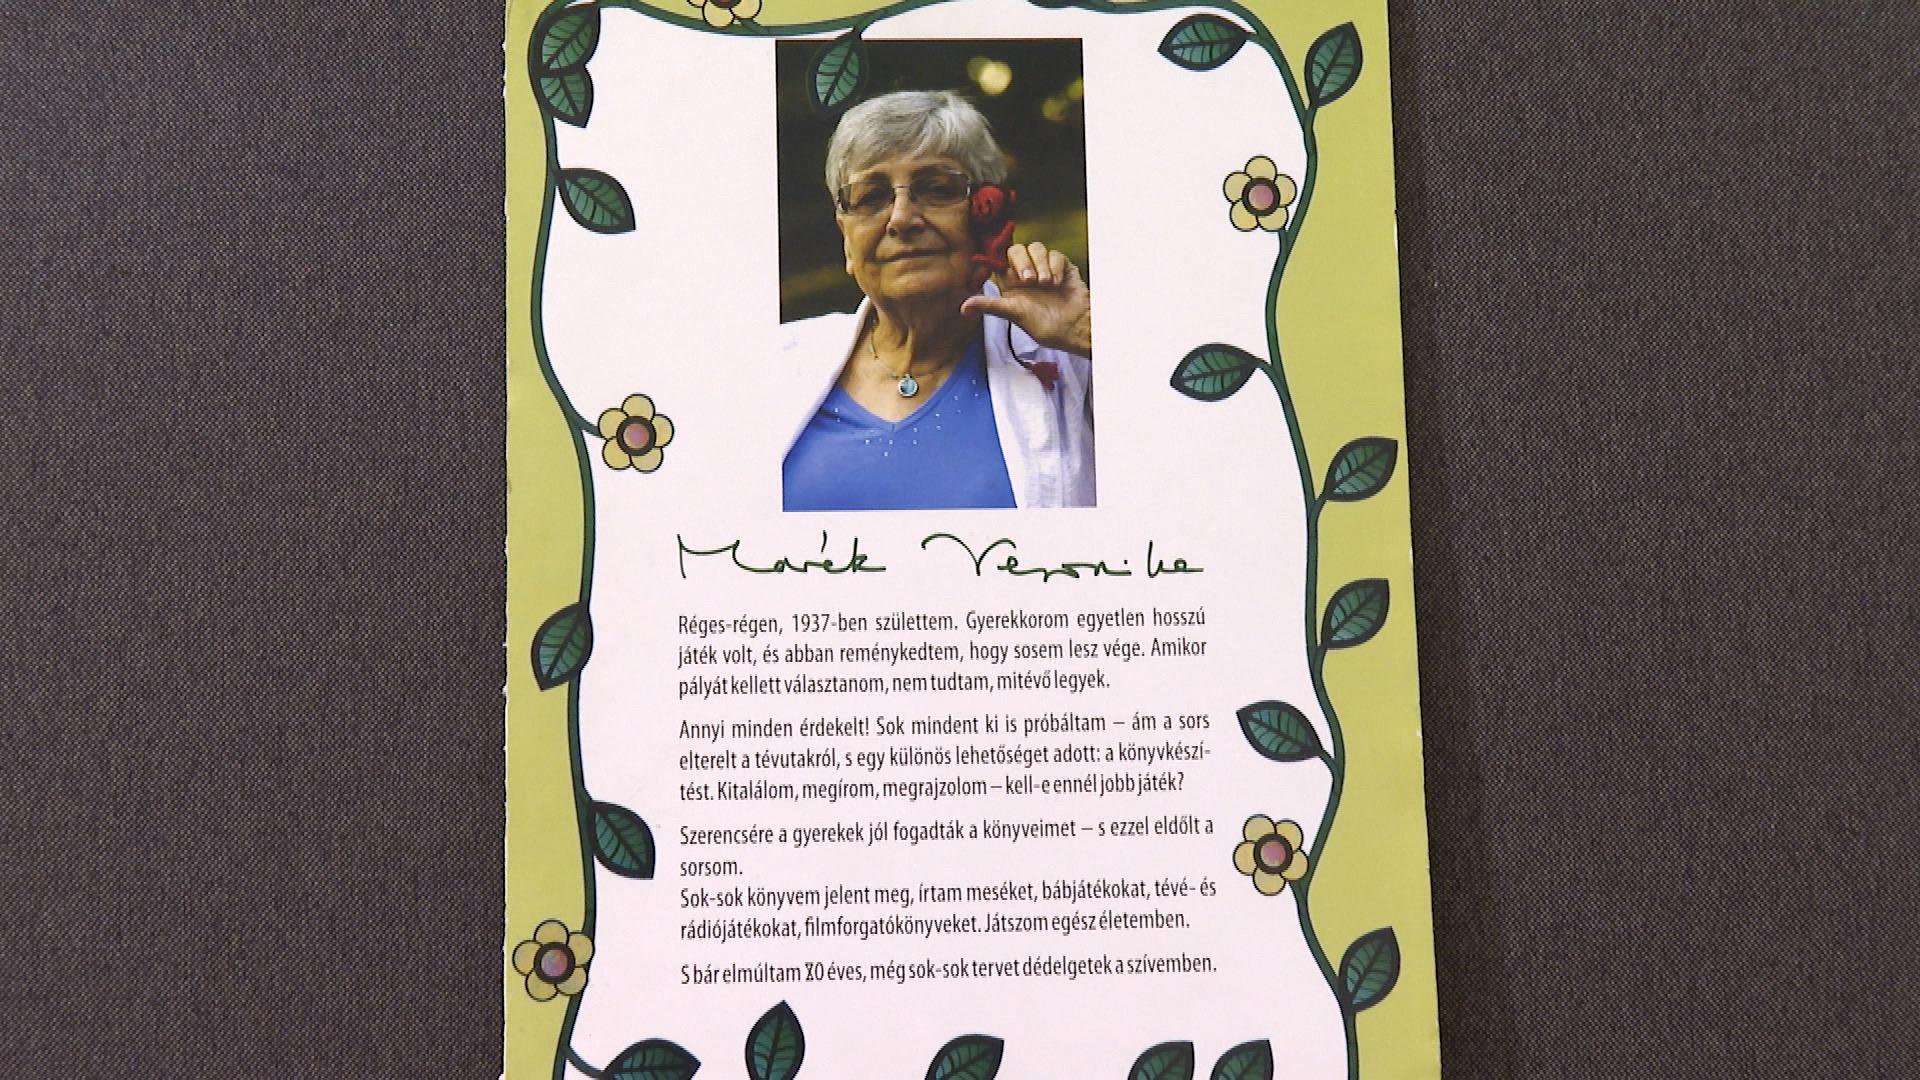 Marék Veronika
Réges-régen, 1937-ben születtem. Gyerekkorom egyetlen hosszú
játék volt, és abban reménykedtem, hogy sosem lesz vége. Amikor
pályát kellett választanom, nem tudtam, mitévő legyek.
Annyi minden érdekelt! Sok mindent ki is próbáltam – ám a sors
elterelt a tévutakról, s egy különös lehetőséget adott: a könyvkészí-
tést. Kitalálom, megírom, megrajzolom – kell-e ennél jobb játék?
Szerencsére a gyerekek jól fogadták a könyveimet – s ezzel eldőlt a
sorsom.
Sok-sok könyvem jelent meg, írtam meséket, bábjátékokat, tévé- és
rádiójátékokat, filmforgatókönyveket. Játszom egész életemben.
S bár elmúltam 80 éves, még sok-sok tervet dédelgetek a szívemben.